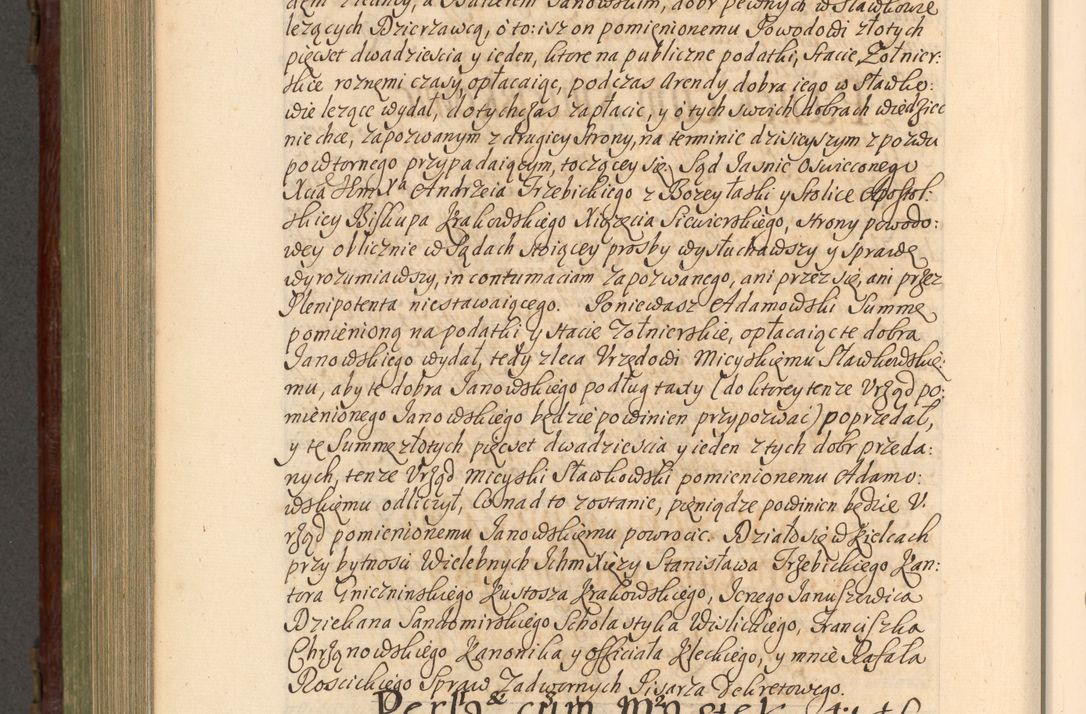 dem z iedney, a Walterem Janowskim, dobr pewnych w Sławkowie
leżących Dzierżawcą, o to: isz on pomienionemu Powodowi złotych
pięcset dwadziescia y ieden, ktore na publiczne podatki, stacie, Zołnier:
skie roznemi czasy, opłacaiąc, podczas Arendy dobra iego w Sławko:
wie leżące wydał, dotychczas zapłacic, y o tych swoich dobrach wiedziec
nie chce, zapozwanym z drugiey strony, na terminie dzisieyszym z porządu
powtornego przypadaiącym, toczącey się: Sąd Jasnie Oswieconego
Xcia JHmXa Andrzeia Trzebickiego z Bożey łaski y Stolice Apostol:
skiey Biskupa Krakowskiego Xiążęcia Siewierskiego, strony powodo:
wey oblicznie w Sądach stoiącey prosby wysłuchawszy y sprawę
wyrozumiawszy, in contumaciam zapozwanego, ani przez się, ani przez
Plenipotenta niestawaiącego. Poniewasz Adamowski Summę
pomienioną na podatki y stacie żołnierskie, opłacaiąc te dobra
Janowskiego wydał, tedy zleca Vrzędowi Mieyskiemu Sławkowskie:
mu, aby te dobra Janowskiego podług taxy (do ktorey tenze Vrząd po:
mienionego Janowskiego będzie powinien przypozwac) poprzedał,
y tę Summę złotych pięcset dwadziescia y ieden z tych dobr przeda:
nych, tenze Vrząd Mieyski Sławkowski pomienionemu Adamo:
wskiemu odliczył, Co nad to zostanie, pieniądze powinien będzie V:
rząd pomienionemu Janowskiemu powrocic. Działo się w Kielcach
przy bytnosci Wielebnych JchmXięży Stanisława Trzebickiego Kan:
tora Gniezninskiego Kustosza Krakowskiego, Jenego Januszowica
Dziekana Sandomirskiego Scholastyka Wislickiego, Franciszka
Chrząnowskiego Kanonika y officiała Kieckiego, y mnie Rafała
Roscickiego Spraw Zadwornych Pisarza Dekretowego.